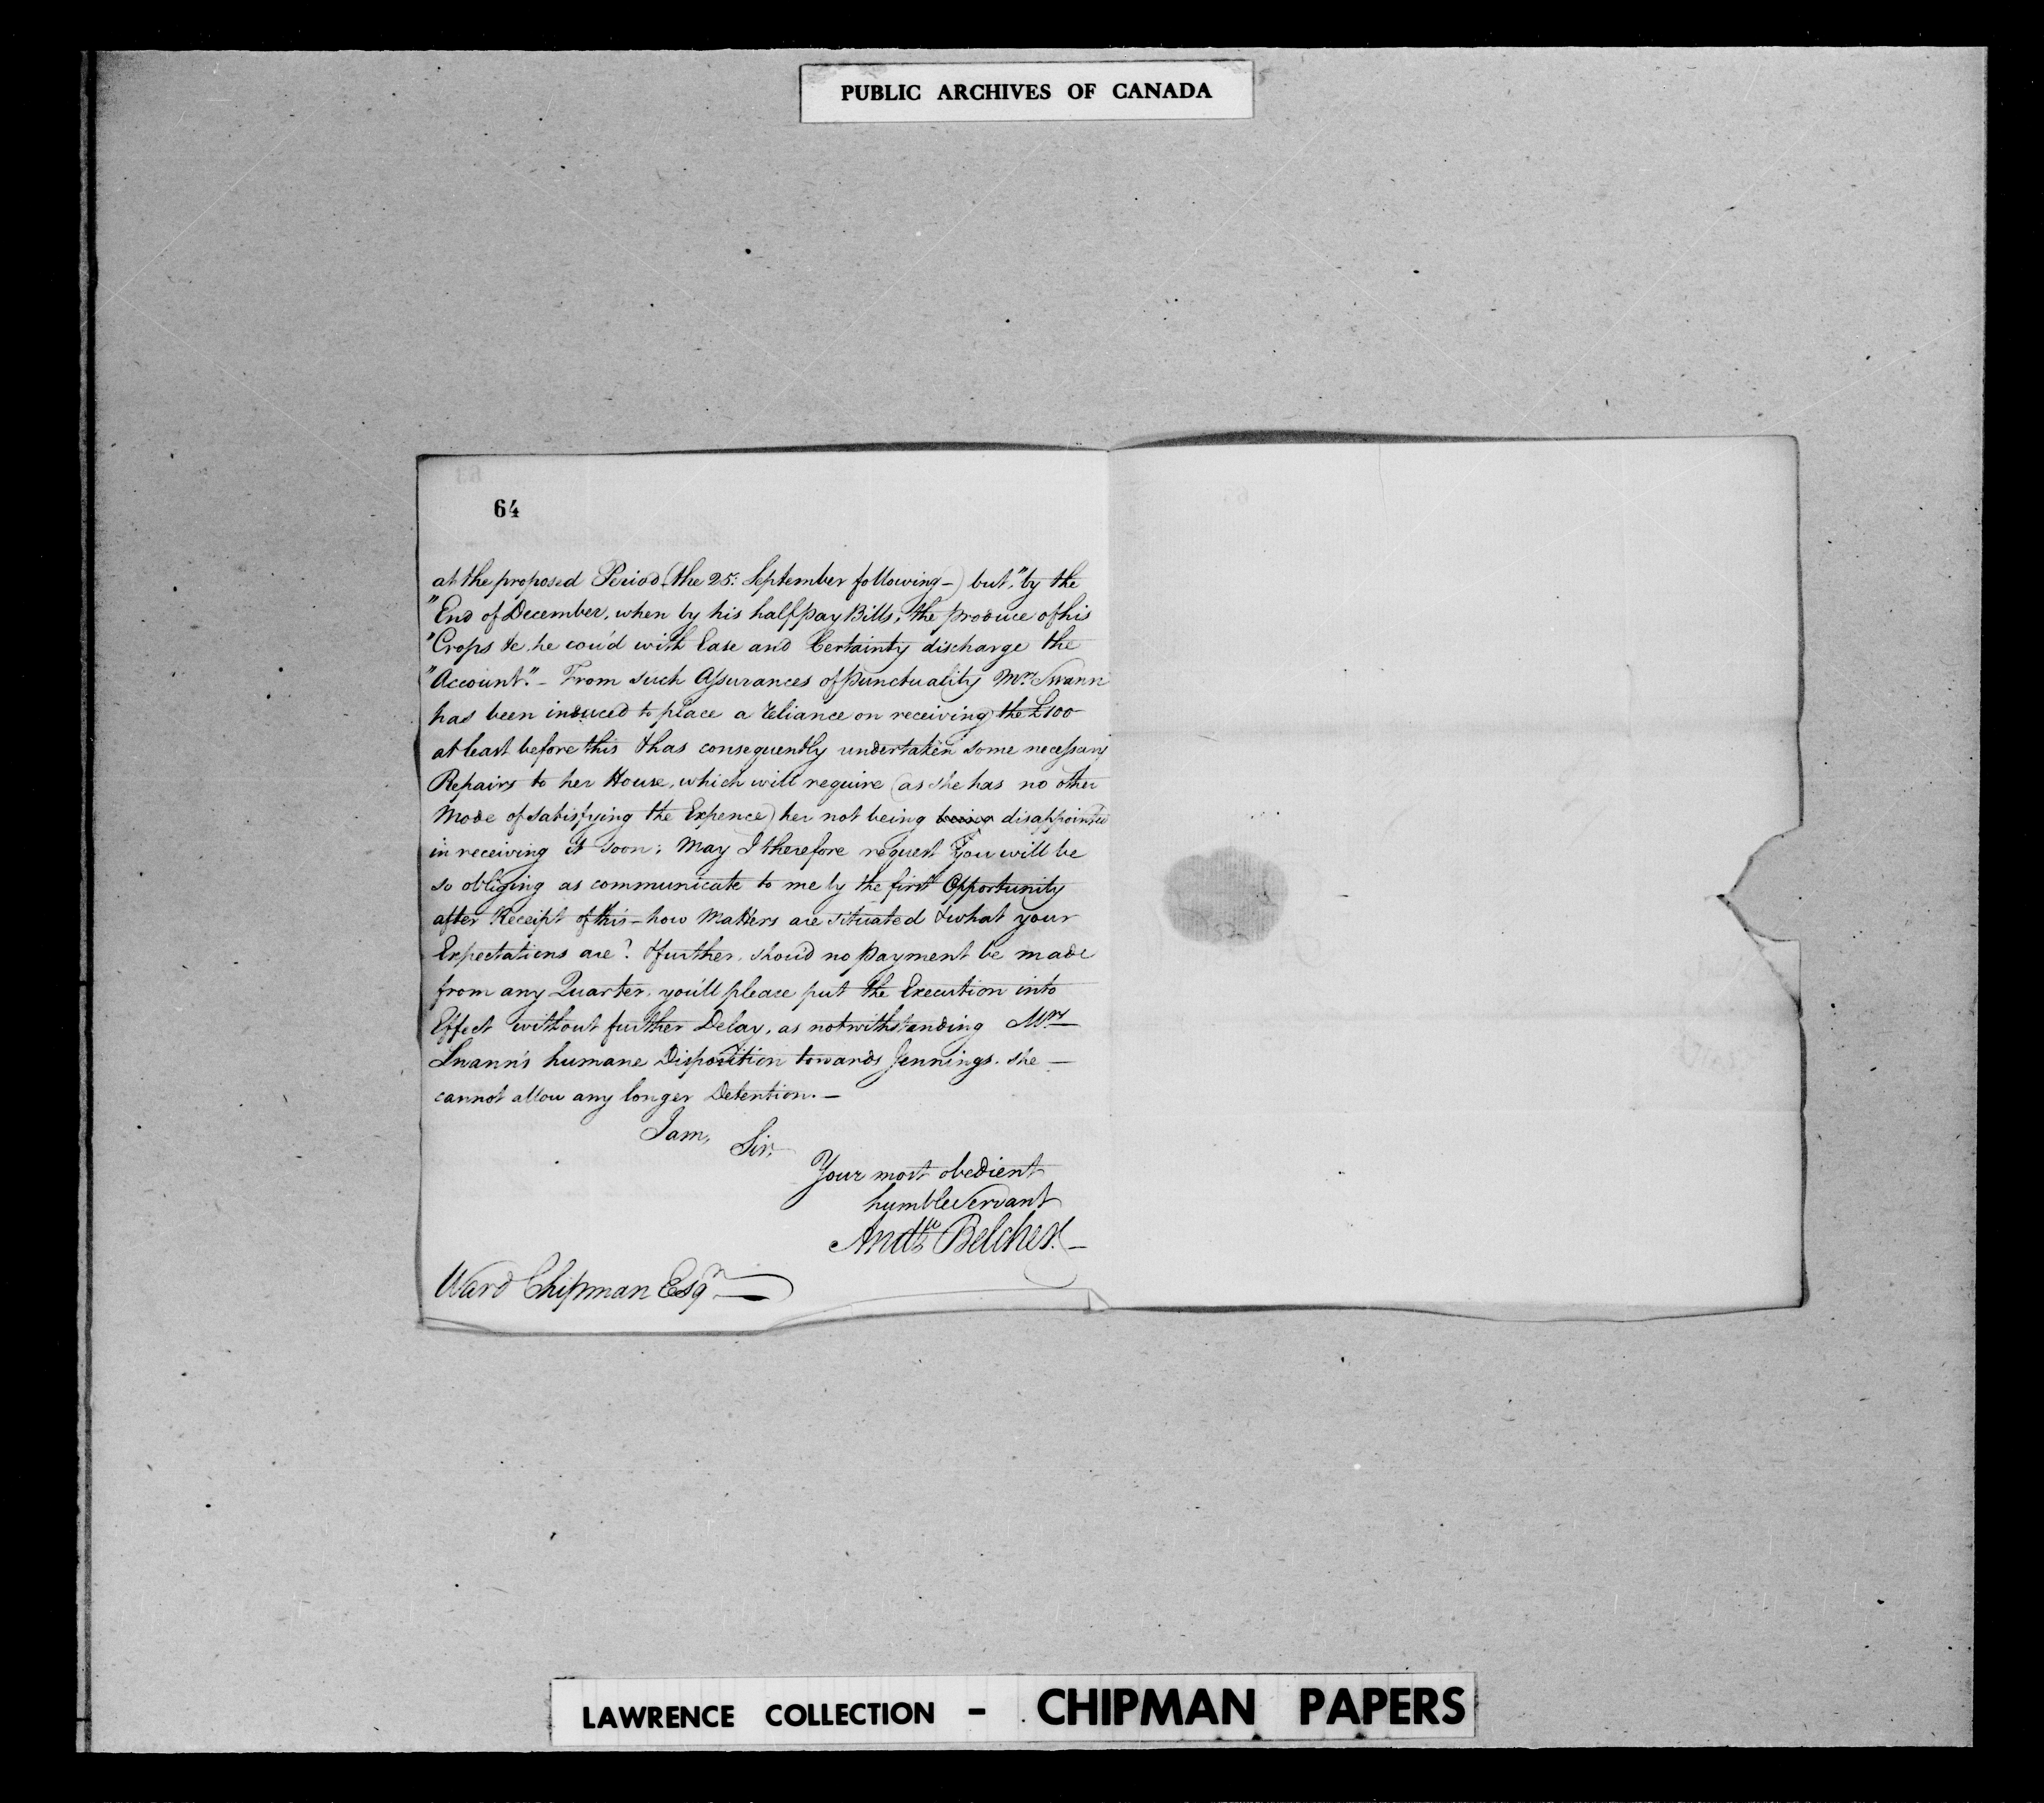 PUBLIC ARCHIVES OF CANADA
64
at the proposed Period (the 25: September following-) but, "by the
"End of December, when by his halfpay Bills, the produce of his
"Crops &c. he cou'd with Ease and Certainty discharge the
"Account." - From such Assurances of punctuality Mrs Swann
has been induced to place a reliance on receiving the £100
at least before this & has consequently undertaken some necessary
Repairs to her House, which will require (as she has no other
Mode of satisfying the Expence) her not being being disappointed
in receiving it soon; May I therefore request You will be
so obliging as communicate to me by the first Opportunity
after Receipt of this - how Matters are situated & what your
Expectations are? & further, shou'd no payment be made
from any Quarter, you'll please put the Execution into
Effect without further Delay, as notwithstanding Mrs
Swann's humane Disposition towards Jennings. she -
cannot allow any longer Detention. -
I am,
Sir,
Your most obedient
humble Servant
Andw Belcher. -
Ward Chipman Esqr
LAWRENCE COLLECTION - CHIPMAN PAPERS